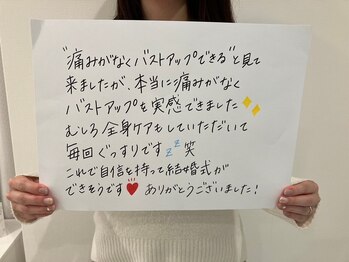 "痛みがなくバストアップできる"と見て
来ましたが、本当に痛みがなく
バストアップを実感できました✨
むしろ全身ケアもしていただいて
毎回ぐっすりです💤笑
これで自信を持って結婚式が
できそうです♥ ありがとうございました!